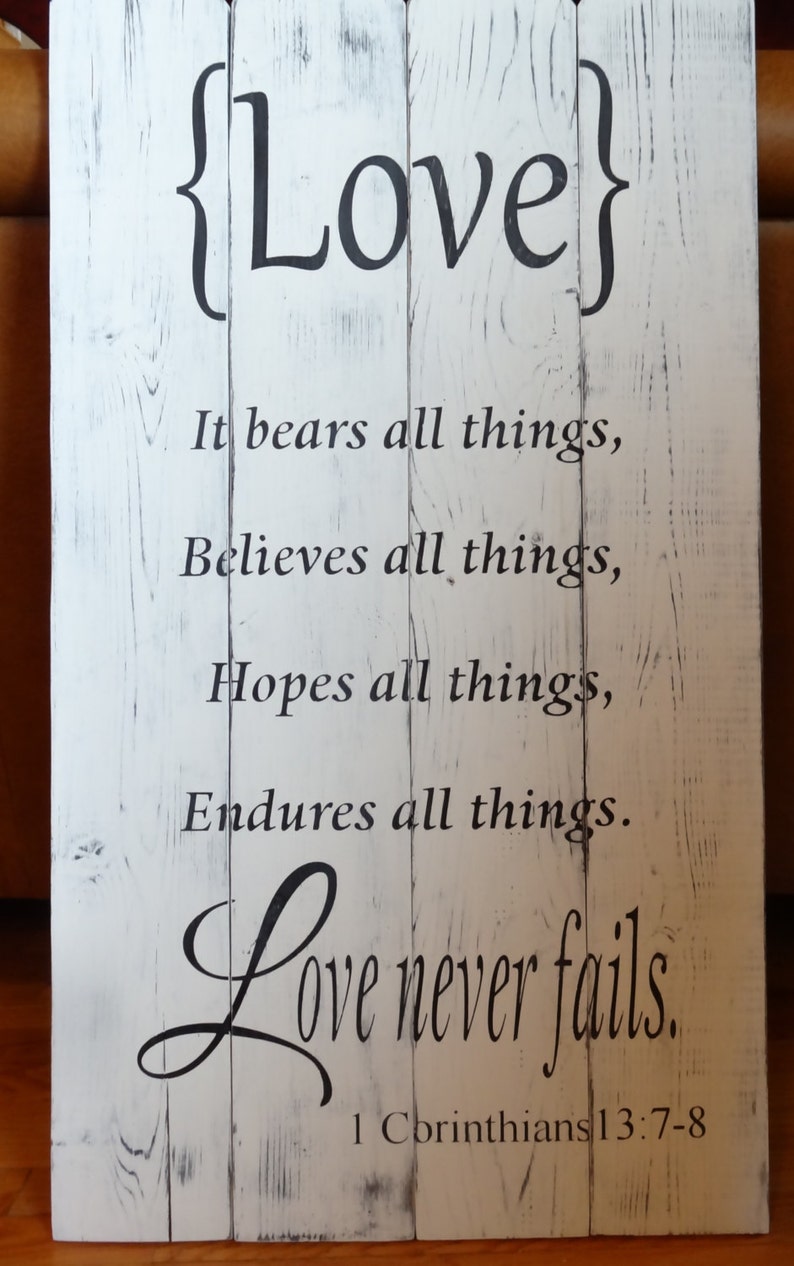 {Love}
It bears all things,
Believes all things,
Hopes all things,
Endures all things.
Love never fails.
1 Corinthians 13:7-8